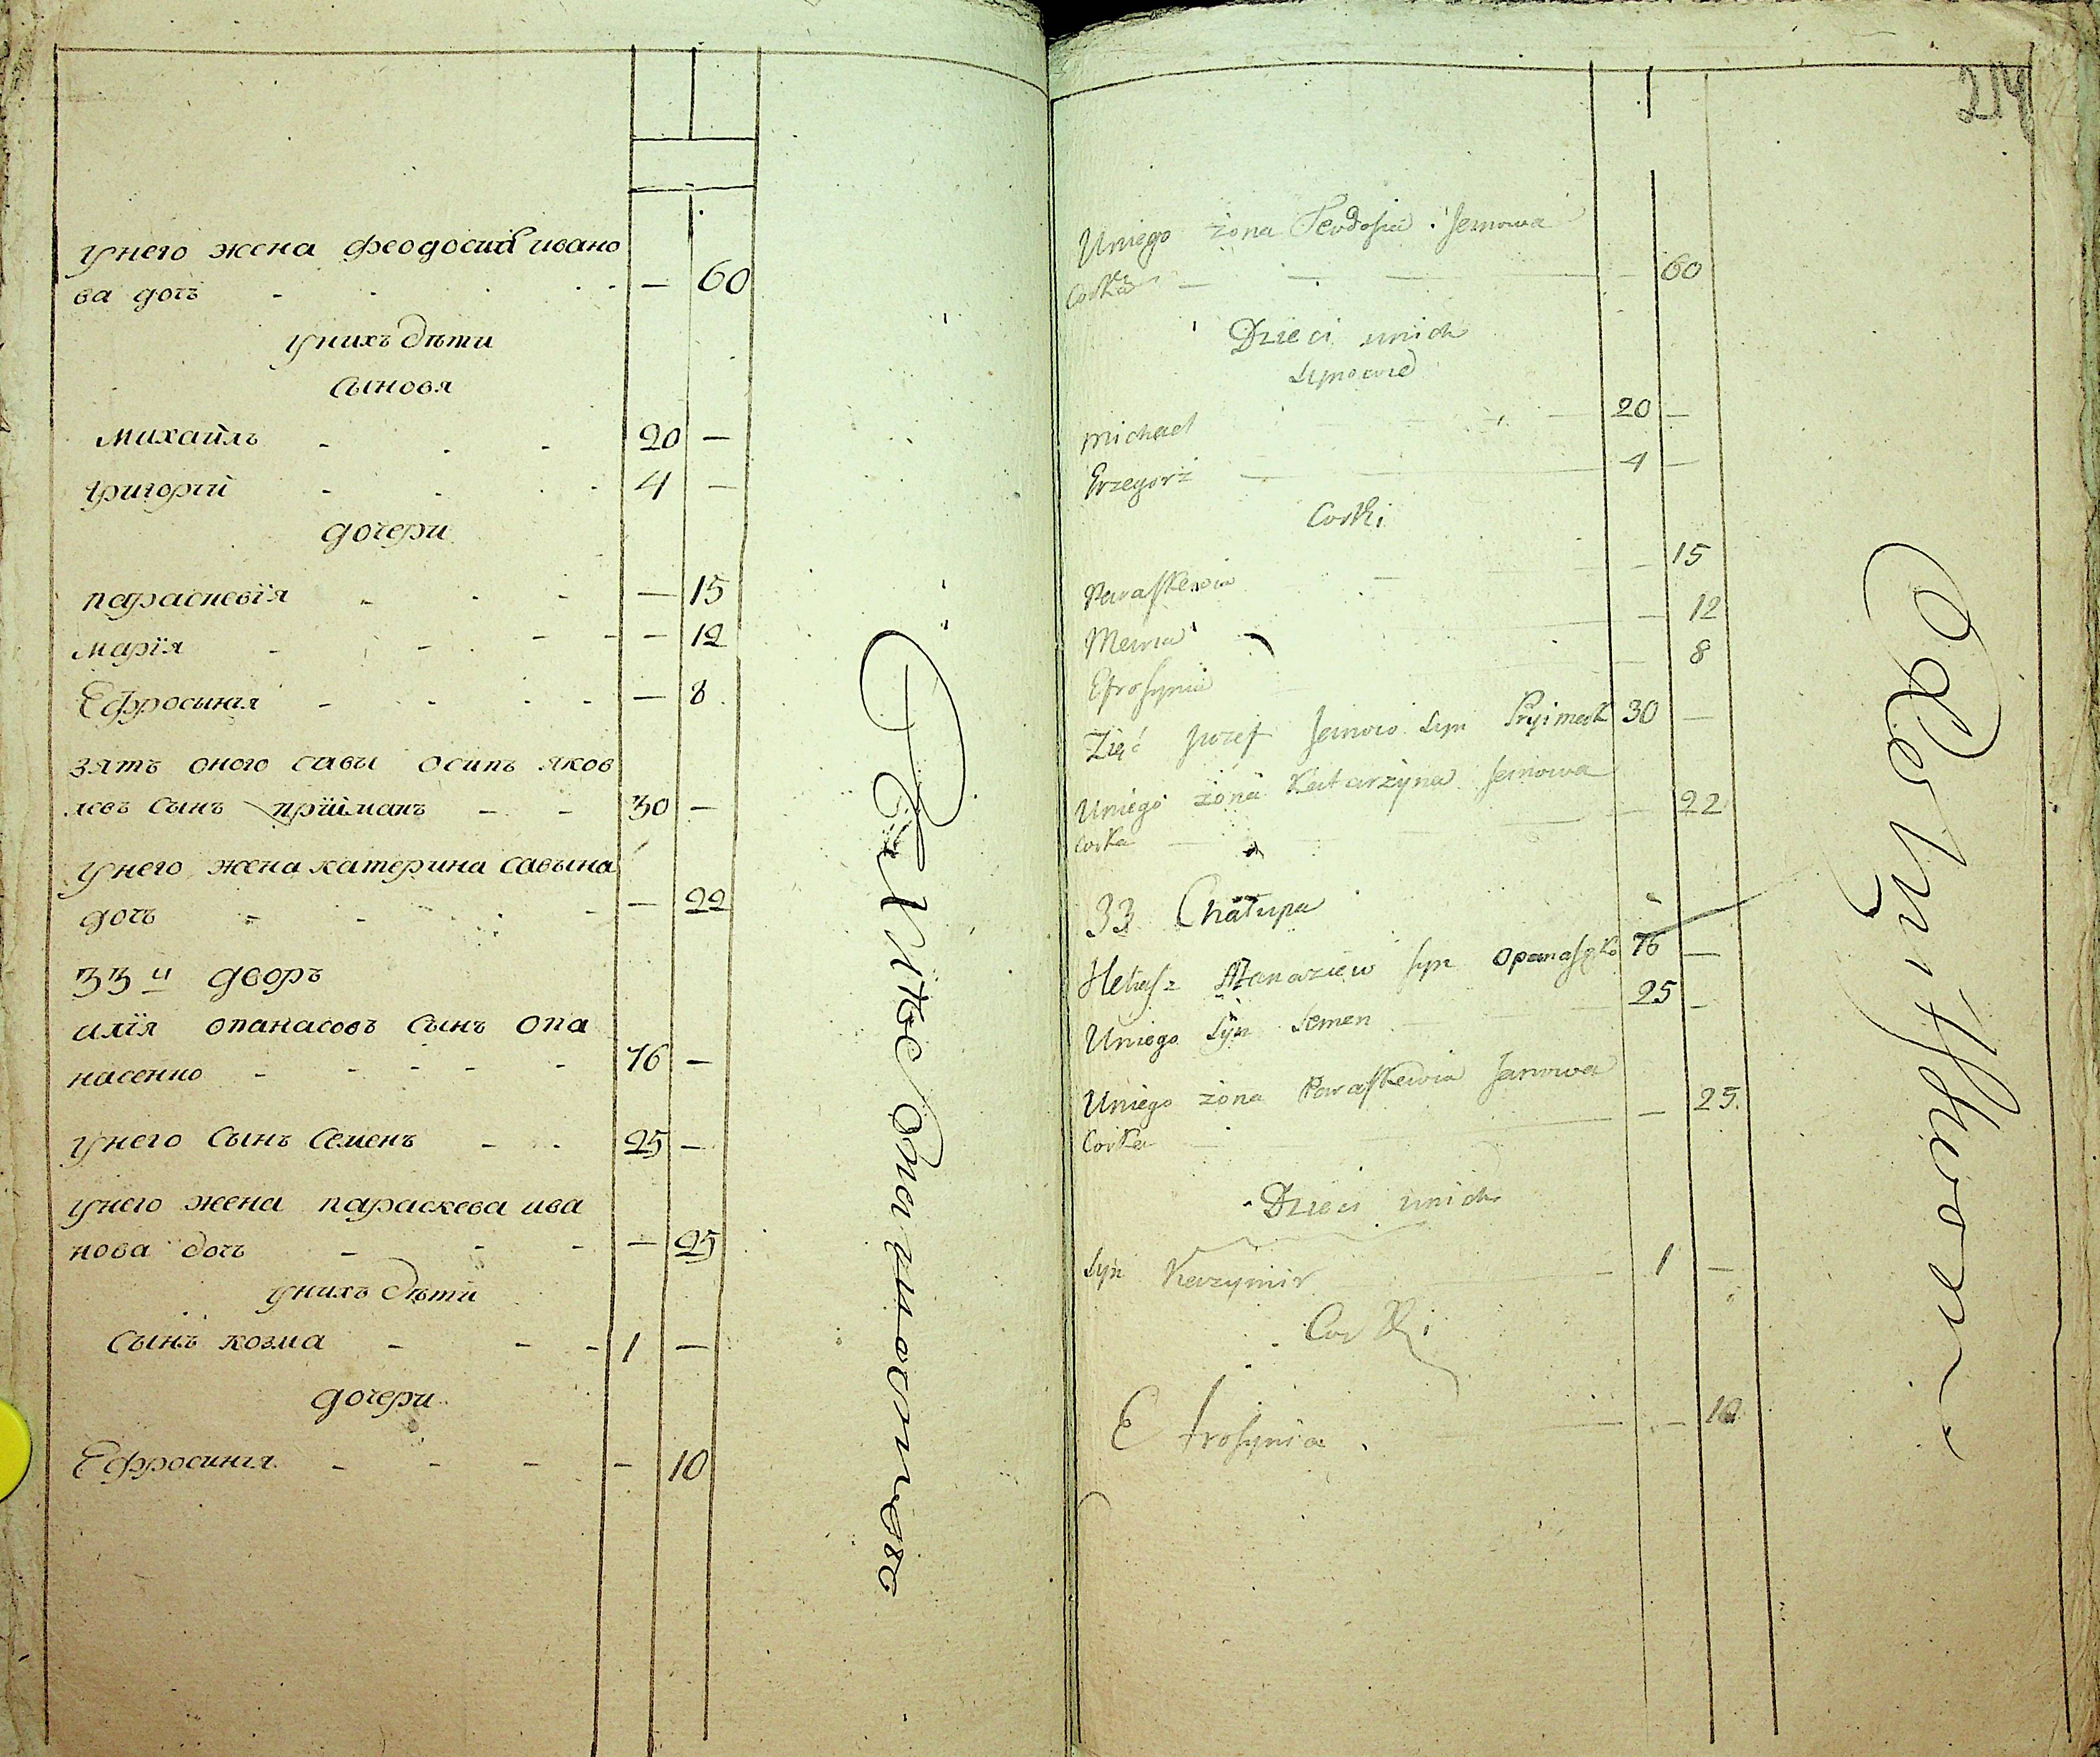 унего жена феодосия ивано
ва дочь - - - — 60
унихъ дѣти
сыновя
михаилъ - - - 20 —
григорій - - - 4 —
дочери
парасκевія - - - — 15
марія - - - — 12
Ефросинія - - - — 8
зять оного савы осипъ яков
левъ сынъ пріймакъ - - 30 —
унего жена катерина савына
дочь - - - — 22
33й дворъ
илія опанасовъ сынъ опа
насенко - - - 76 —
унего сынъ семенъ - - 25 —
унего жена параскева ива
нова дочь - - - — 25
унихъ дѣти
сынъ козма - - - 1 —
дочери
Ефросинія - - - — 10
214
Uniego żona Teodosia Janowa
Corka — — — 60
Dzieci unich
Synowie
Michael 20 —
Grzegorz — 4 —
Corki
Paraskewia — 15
— 12
Efrosynia — 8
Zięć Jozef syn Pryimak 30 —
Uniego żona Katarzyna
Corka — 22
33 Chałupa
Heliasz Atanaziew syn 76 —
Uniego Syn Semen 25 —
Uniego żona Paraskewia Janowa
Corka — 25
Dzieci unich
Syn Kazymir 1 —
Corki
Efrosynia — 10